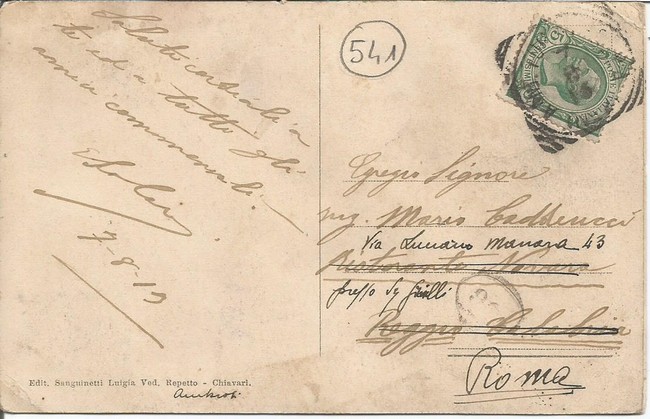 Saluti cordiali a
te ed a tutti gli
amici commensali.
7-8-13
541
Egregio Signore
Ing. Mario Cadderucci
Via Luciano Manara 43
Ristorante Novara
presso Sg
Reggio Calabria
Roma
Edit. Sanguinetti Luigia Ved. Repetto - Chiavari.